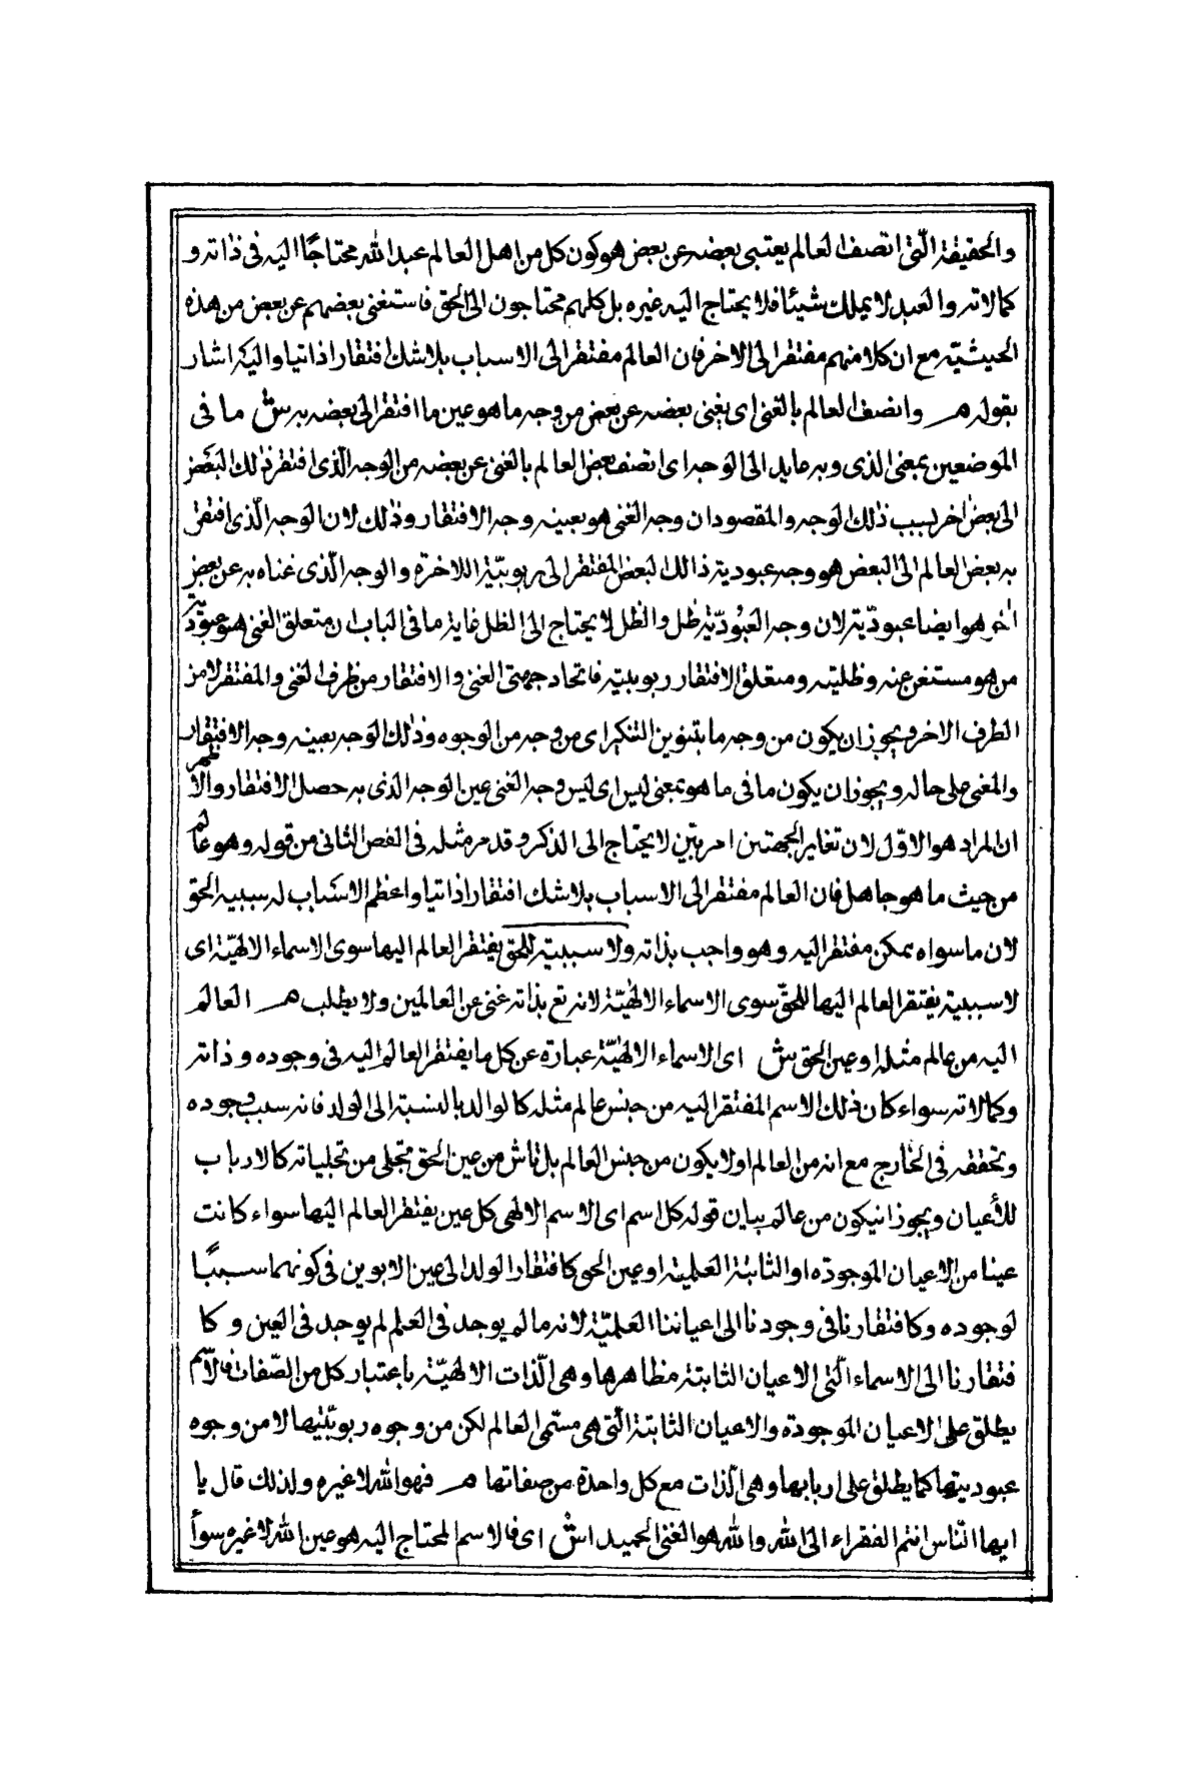 والحقيقة الّتى اتصف العالم يعتبى بعضه عن بعض هو كون كل من اهل العالم عبد الله محتاجًا اليه فى ذاته و
كمالاته والعبد لا يملك شيئا فلا يحتاج اليه غيره بل كلهم محتاجون الى الحق فاستغنى بعضهم عن بعض من هذه
الحيثيّة مع ان كلا منهم مفتقر الى الاخر فان العالم مفتقر الى الاسباب بلا شك افتقارا ذاتيا واليه اشار
بقوله م واتصف العالم بالغنى اى يغنى بعضه عن بعض من وجه ما هو عين ما افتقر الى بعضه به ش ما فى
الموضعين بمعنى الذى وبه عايد الى الوجه اى اتصف بعض العالم بالغنى عن بعضه من الوجه الّذى افتقر ذلك البعض
الى بعض اخر لسبب ذلك الوجه والمقصود ان وجه الغنى هو بعينه وجه الافتقار وذلك لان الوجه الّذى افتقر
به بعض العالم الى البعض هو وجه عبودية ذالك البعض المفتقر الى ربوبيّة اللاخرة والوجه الّذى غناه به عن بعض
اخر هو ايضا عبوديّة لان وجه العبُوديّة ظل والظل لا يحتاج الى الظل غاية ما فى الباب ان متعلق الغنى هو عبوديّة
من هو مستغن عنه وظليته ومتعلق الافتقار ربوبيته فاتحاد جهتى الغنى والافتقار من طرف الغنى والمفتقر لا من
الطرف الاخر ويجوز ان يكون من وجه ما بتنوين التنكير اى من وجه من الوجوه وذلك الوجه بعينه وجه الافتقار
والمغنى على حاله ويجوز ان يكون ما فى ما هو بمعنى ليس اى ليس وجه الغنى عين الوجه الذى به حصل الافتقار والاظهر
ان المراد هو الاوّل لان تغاير الجهتين امر بيّن لا يحتاج الى الذكر وقد مر مثله فى الفص الثانى من قوله وهو عالم
من حيث ما هو جاهل فان العالم مفتقر الى الاسباب بلا شك افتقارا ذاتيا واعظم الاسباب له سببيه الحق
لان ما سواه ممكن مفتقر اليه وهو واجب بذاته ولا سببيّة للحق يفتقر العالم اليها سوى الاسماء الالهيّة اى
لا سببية يفتقر العالم اليها للحقّ سوى الاسماء الالهٰيّة لانه تع بذاته غنى عن العالمين ولا يطلب م العالم
اليه من عالم مثله او عين الحق ش اى الاسماء الالهٰيّة عبارة عن كل ما يفتقر العالم اليه فى وجوده وذاته
وكمالاته سواء كان ذلك الاسم المفتقر اليه من جنس عالم مثله كالوالد بالنسبة الى الولد فانه سبب وجوده
وتحققه فى الخارج مع انه من العالم او لا يكون من جنس العالم بل ناش من عين الحق متجلى من تجلياته كالارباب
للأعيان ويجوز انيكون من عالم بيان قوله كل اسم اى الاسم الالهى كل عين يفتقر العالم اليها سواء كانت
عينا من الاعيان الموجودة او الثابتة العلمية او عين الحق كافتقار الولد الى عين الابوين فى كونهما سببًا
لوجوده وكافتقارنا فى وجودنا الى اعياننا العلميّة لانه ما لم يوجد فى العلم لم يوجد فى العين وكا
فتقارنا الى الاسماء الّتى الاعيان الثابتة مظاهرها وهى الّذات الالهيّة باعتبار كل من الصّفات فالاسم
يطلق على الاعيان الموجودة والاعيان الثابتة الّتى هى مسمّى العالم لكن من وجوه ربوبيّتها لا من وجوه
عبوديتها كما يطلق على اربابها وهى الّذات مع كل واحدة من صفاتها م فهو الله لا غيره ولذلك قال يا
ايها النّاس انتم الفقراء الى الله والله هو الغنى الحميد اش اى فالاسم المحتاج اليه هو عين الله لا غيره سوأ